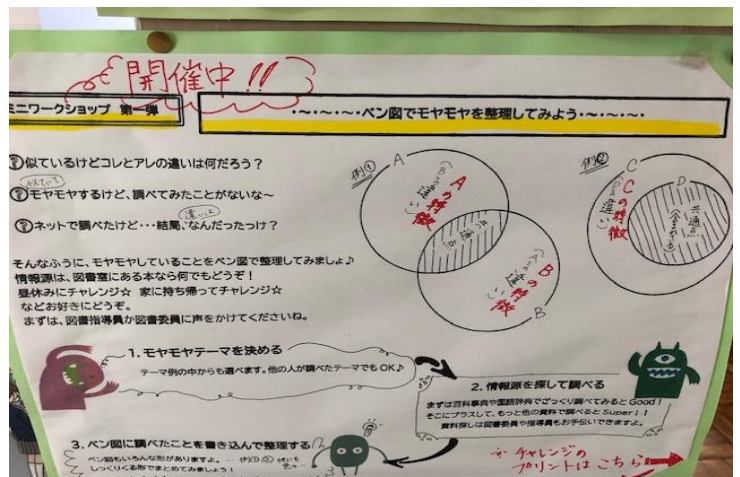 開催中!!
ミニワークショップ 第一弾
・～・～・～・ベン図でモヤモヤを整理してみよう・～・～・～・
?似ているけどコレとアレの違いは何だろう?
似ていて
?モヤモヤするけど、調べてみたことがないな～
違いは
?ネットで調べたけど・・・結局、なんだったっけ?
そんなふうに、モヤモヤしていることをベン図で整理してみましょ♪
情報源は、図書室にある本なら何でもどうぞ!
昼休みにチャレンジ☆ 家に持ち帰ってチャレンジ☆
などお好きにどうぞ。
まずは、図書指導員か図書委員に声をかけてくださいね。
例①
A
Aの特徴
(Bとの違い)
共通点
Bの特徴
(Aとの違い)
B
例②
C
Cの特徴
(Dとの違い)
D
共通点
1. モヤモヤテーマを決める
テーマ例の中からも選べます。他の人が調べたテーマでもOK♪
2. 情報源を探して調べる
まずは百科事典や国語辞典でざっくり調べてみるとGood!
そこにプラスして、もっと他の資料で調べるとSuper!!
資料探しは図書委員や指導員もお手伝いできますよ。
3. ベン図に調べたことを書き込んで整理する
ベン図もいろんな形がありますよ。
例①,②
しっくりくる形でまとめてみましょう!
※チャレンジの
プリントはこちら→